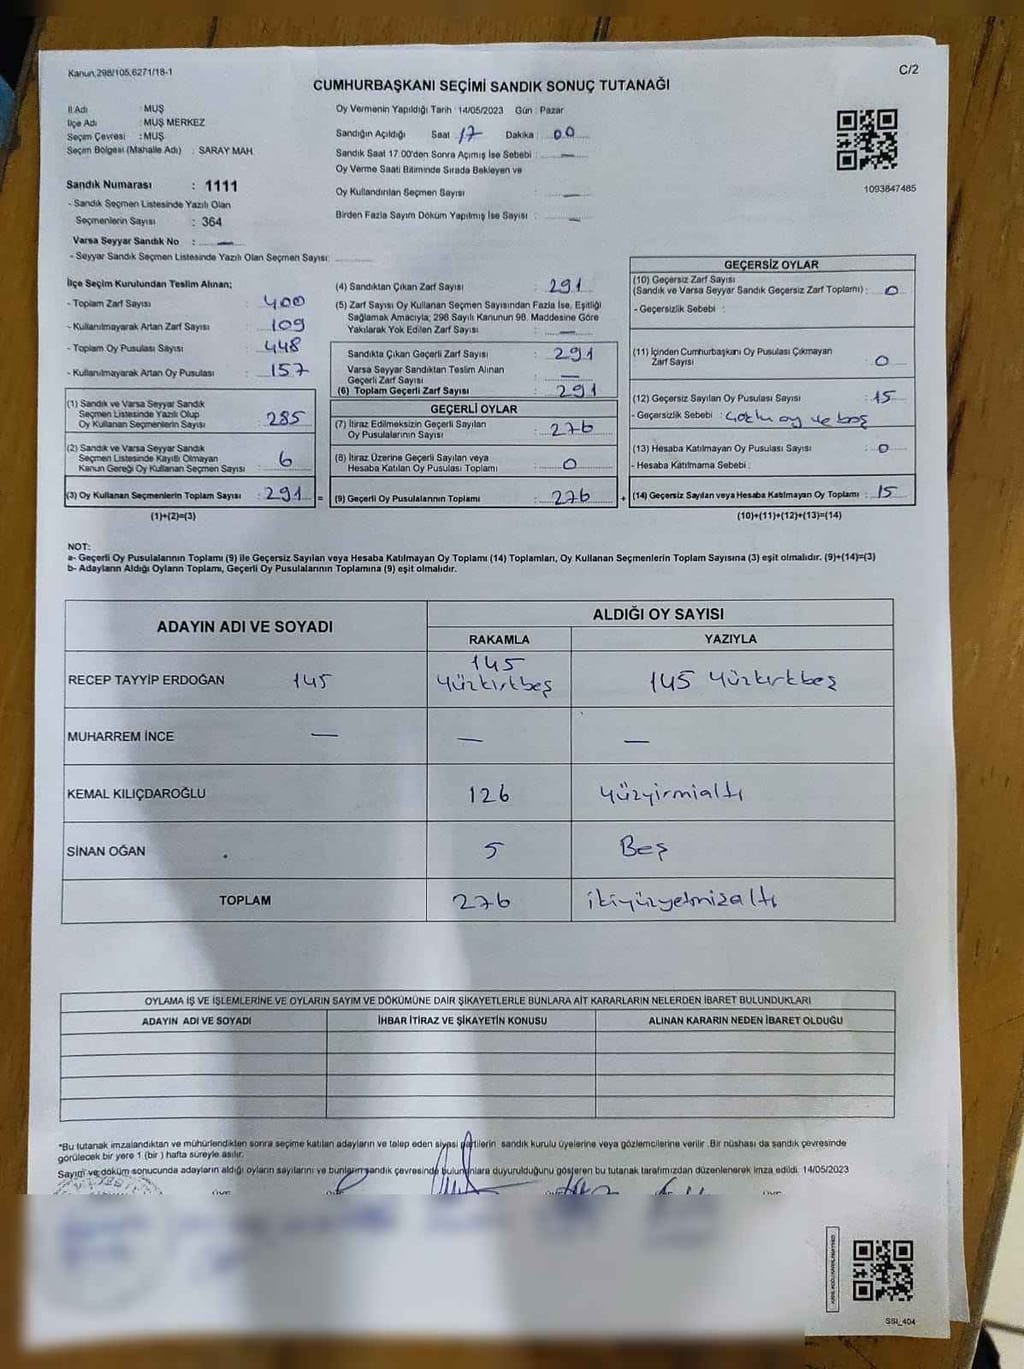 Kanun,298/105,6271/18-1
C/2
CUMHURBAŞKANI SEÇİMİ SANDIK SONUÇ TUTANAĞI
İl Adı : MUŞ
İlçe Adı : MUŞ MERKEZ
Seçim Çevresi : MUŞ
Seçim Bölgesi (Mahalle Adı) : SARAY MAH
Sandık Numarası : 1111
- Sandık Seçmen Listesinde Yazılı Olan
Seçmenlerin Sayısı : 364
Varsa Seyyar Sandık No : —
- Seyyar Sandık Seçmen Listesinde Yazılı Olan Seçmen Sayısı:
Oy Vermenin Yapıldığı Tarih : 14/05/2023 Gün : Pazar
Sandığın Açıldığı Saat 17 Dakika : 00
Sandık Saat 17.00'den Sonra Açılmış İse Sebebi : —
Oy Verme Saati Bitiminde Sırada Bekleyen ve
Oy Kullandırılan Seçmen Sayısı : —
Birden Fazla Sayım Döküm Yapılmış İse Sayısı : —
1093847485
İlçe Seçim Kurulundan Teslim Alınan;
- Toplam Zarf Sayısı : 400
- Kullanılmayarak Artan Zarf Sayısı : 109
- Toplam Oy Pusulası Sayısı : 448
- Kullanılmayarak Artan Oy Pusulası : 157
(1) Sandık ve Varsa Seyyar Sandık
Seçmen Listesinde Yazılı Olup
Oy Kullanan Seçmenlerin Sayısı : 285
(2) Sandık ve Varsa Seyyar Sandık
Seçmen Listesinde Kayıtlı Olmayan
Kanun Gereği Oy Kullanan Seçmen Sayısı : 6
(3) Oy Kullanan Seçmenlerin Toplam Sayısı : 291 =
(1)+(2)=(3)
(4) Sandıktan Çıkan Zarf Sayısı : 291
(5) Zarf Sayısı Oy Kullanan Seçmen Sayısından Fazla İse, Eşitliği
Sağlamak Amacıyla; 298 Sayılı Kanunun 98. Maddesine Göre
Yakılarak Yok Edilen Zarf Sayısı : —
Sandıkta Çıkan Geçerli Zarf Sayısı : 291
Varsa Seyyar Sandıktan Teslim Alınan
Geçerli Zarf Sayısı : —
(6) Toplam Geçerli Zarf Sayısı : 291
GEÇERLİ OYLAR
(7) İtiraz Edilmeksizin Geçerli Sayılan
Oy Pusulalarının Sayısı : 276
(8) İtiraz Üzerine Geçerli Sayılan veya
Hesaba Katılan Oy Pusulası Toplamı : 0
(9) Geçerli Oy Pusulalarının Toplamı : 276 +
GEÇERSİZ OYLAR
(10) Geçersiz Zarf Sayısı
(Sandık ve Varsa Seyyar Sandık Geçersiz Zarf Toplamı) : 0
- Geçersizlik Sebebi :
(11) İçinden Cumhurbaşkanı Oy Pusulası Çıkmayan
Zarf Sayısı : 0
(12) Geçersiz Sayılan Oy Pusulası Sayısı : 15
- Geçersizlik Sebebi : oy ve boş
(13) Hesaba Katılmayan Oy Pusulası Sayısı : 0
- Hesaba Katılmama Sebebi :
(14) Geçersiz Sayılan veya Hesaba Katılmayan Oy Toplamı : 15
(10)+(11)+(12)+(13)=(14)
NOT:
a- Geçerli Oy Pusulalarının Toplamı (9) ile Geçersiz Sayılan veya Hesaba Katılmayan Oy Toplamı (14) Toplamları, Oy Kullanan Seçmenlerin Toplam Sayısına (3) eşit olmalıdır. (9)+(14)=(3)
b- Adayların Aldığı Oyların Toplamı, Geçerli Oy Pusulalarının Toplamına (9) eşit olmalıdır.
ADAYIN ADI VE SOYADI
ALDIĞI OY SAYISI
RAKAMLA YAZIYLA
RECEP TAYYİP ERDOĞAN 145 145 yüzkırkbeş 145 yüzkırkbeş
MUHARREM İNCE — — —
KEMAL KILIÇDAROĞLU 126 yüzyirmialtı
SİNAN OĞAN 5 Beş
TOPLAM 276 ikiyüzyetmişaltı
OYLAMA İŞ VE İŞLEMLERİNE VE OYLARIN SAYIM VE DÖKÜMÜNE DAİR ŞİKAYETLERLE BUNLARA AİT KARARLARIN NELERDEN İBARET BULUNDUKLARI
ADAYIN ADI VE SOYADI İHBAR İTİRAZ VE ŞİKAYETİN KONUSU ALINAN KARARIN NEDEN İBARET OLDUĞU
*Bu tutanak imzalandıktan ve mühürlendikten sonra seçime katılan adayların ve talep eden siyasi partilerin sandık kurulu üyelerine veya gözlemcilerine verilir .Bir nüshası da sandık çevresinde
görülecek bir yere 1 (bir ) hafta süreyle asılır.
Sayım ve döküm sonucunda adayların aldığı oyların sayılarını ve bunların sandık çevresinde bulunanlara duyurulduğunu gösteren bu tutanak tarafımızdan düzenlenerek imza edildi. 14/05/2023
SSI_404